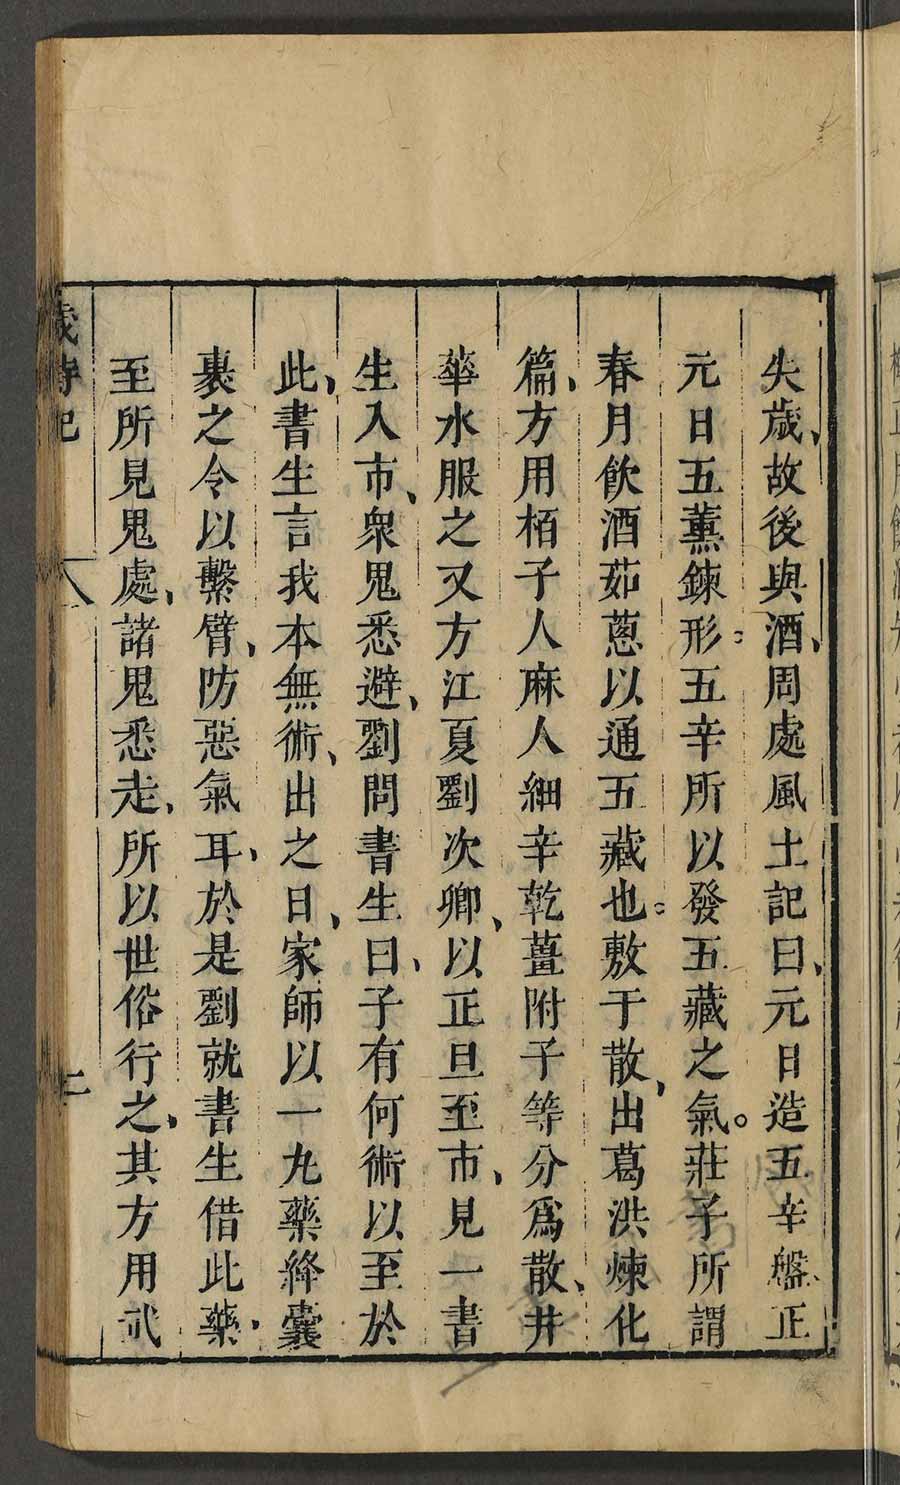 失歲、故後與酒、周處風土記曰、元日造五辛盤、正
元日五薰鍊形。五辛所以發五藏之氣。莊子所謂
春月飲酒茹蔥以通五藏也。敷于散、出葛洪煉化
篇、方用栢子人麻人細辛乾薑附子等分爲散、井
華水服之又方江夏劉次卿、以正旦至市、見一書
生入市、衆鬼悉避、劉問書生曰、子有何術以至於
此、書生言我本無術、出之日、家師以一丸藥絳囊
裹之令以繫臂、防惡氣耳、於是劉就書生借此藥、
至所見鬼處、諸鬼悉走、所以世俗行之、其方用武
歲時記 八 二